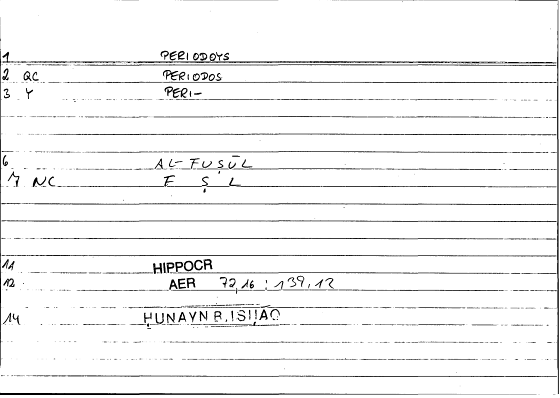 1 PERIODOYS
2 QC PERIODOS
3 Y PERI-
6 AL-FUṢŪL
7 NC F Ṣ L
11 HIPPOCR
12 AER 72,16 : 139,12
14 ḤUNAYN B. ISḤAQ